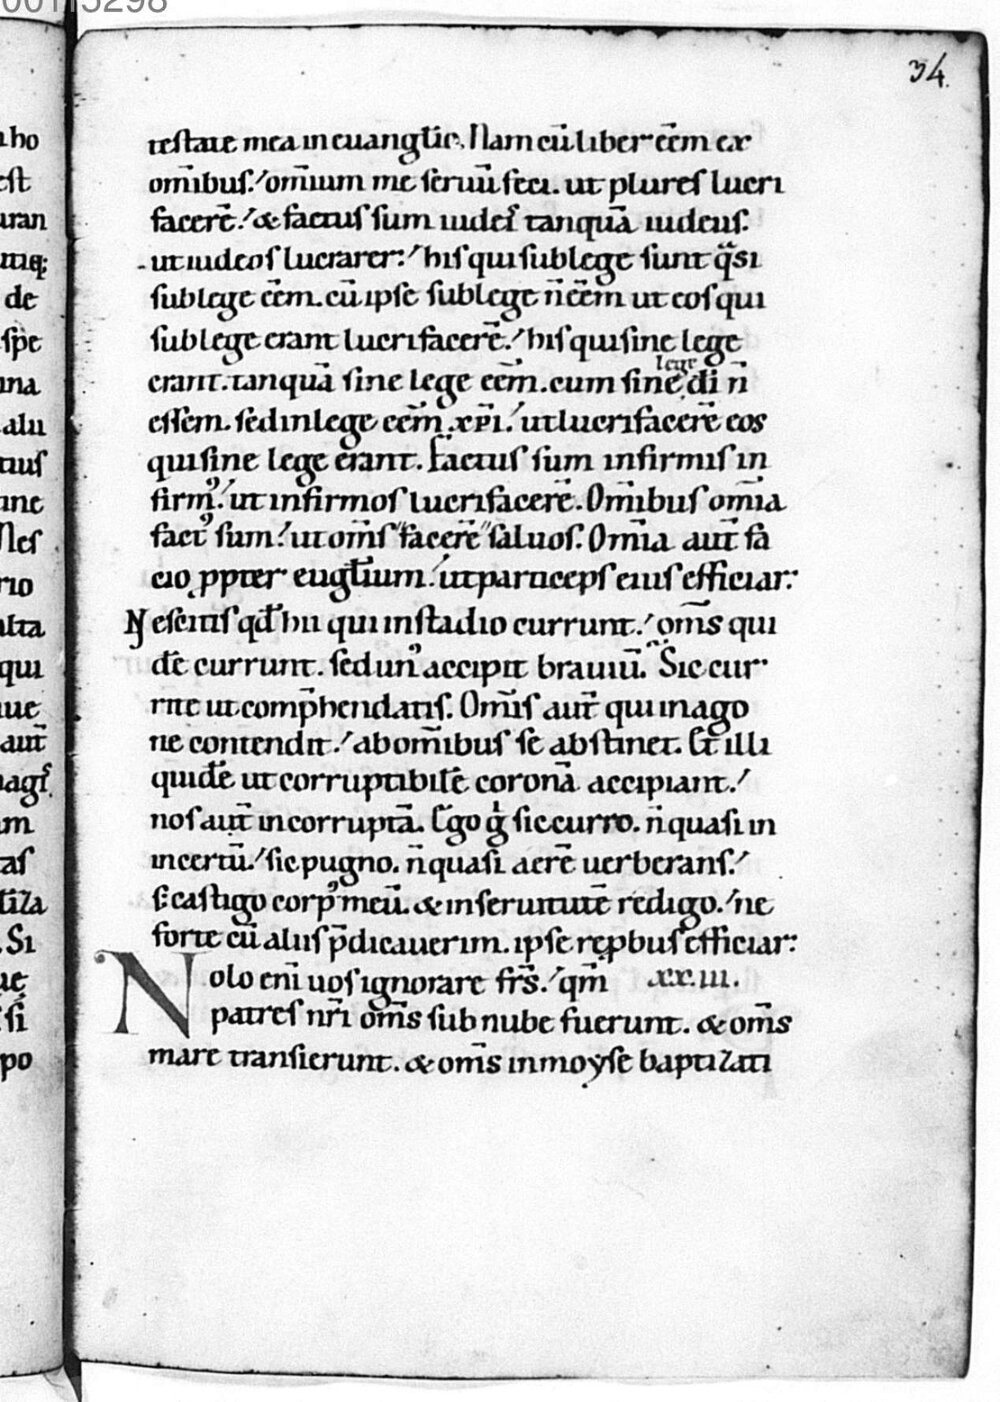 00115298
34.
testate mea in euangl̄ıo. Nam cū liber eēm ex
om̄ibus. om̄ium me seruū feci. ut plures lucri
facerē. & factus sum iudeıˢ tanquā iudeus.
ut iudeos lucrarer. his qui sub lege sunt qᵃsi
sub lege eēm. cū ipse sub lege n̄ eēm ut eos qui
sub lege erant lucrifacerē. his qui sine lege
erant. tanquā sine lege eēm. cum sine lege dī n̄
essem. sed in lege eēm xp̄i. ut lucrifacerē eos
qui sine lege erant. Factus sum infirmis in
firmꝰ. ut infirmos lucrifacerē. Om̄ibus om̄ia
factꝰ sum. ut om̄s facerē saluos. Om̄ia aut̄ fa
cio ꝓpter eugl̄ium. ut particeps eius efficiar:
Nescitis qd̄ hii qui in stadio currunt. om̄s qui
dē currunt. sed unꝰ accipit brauiū. Sic cur
rite ut comp̄hendatis. Om̄is aut̄ qui in ago
ne contendit. ab om̄ibus se abstinet. Et illi
quidē ut corruptibilē coronā accipiant.
nos aut̄ incorruptā. Ego gͥ sic curro. n̄ quasi in
incertū. sic pugno. n̄ quasi aerē uerberans.
s; castigo corpꝰ meū. & in seruitutē redigo. ne
forte cū aliis p̄dicauerim. ipse reꝓbus efficiar:
Nolo enī uos ignorare fr̄s. qm̄ xx.iii.
patres nr̄i om̄s sub nube fuerunt. & om̄s
mare transierunt. & om̄s in moyse baptizati